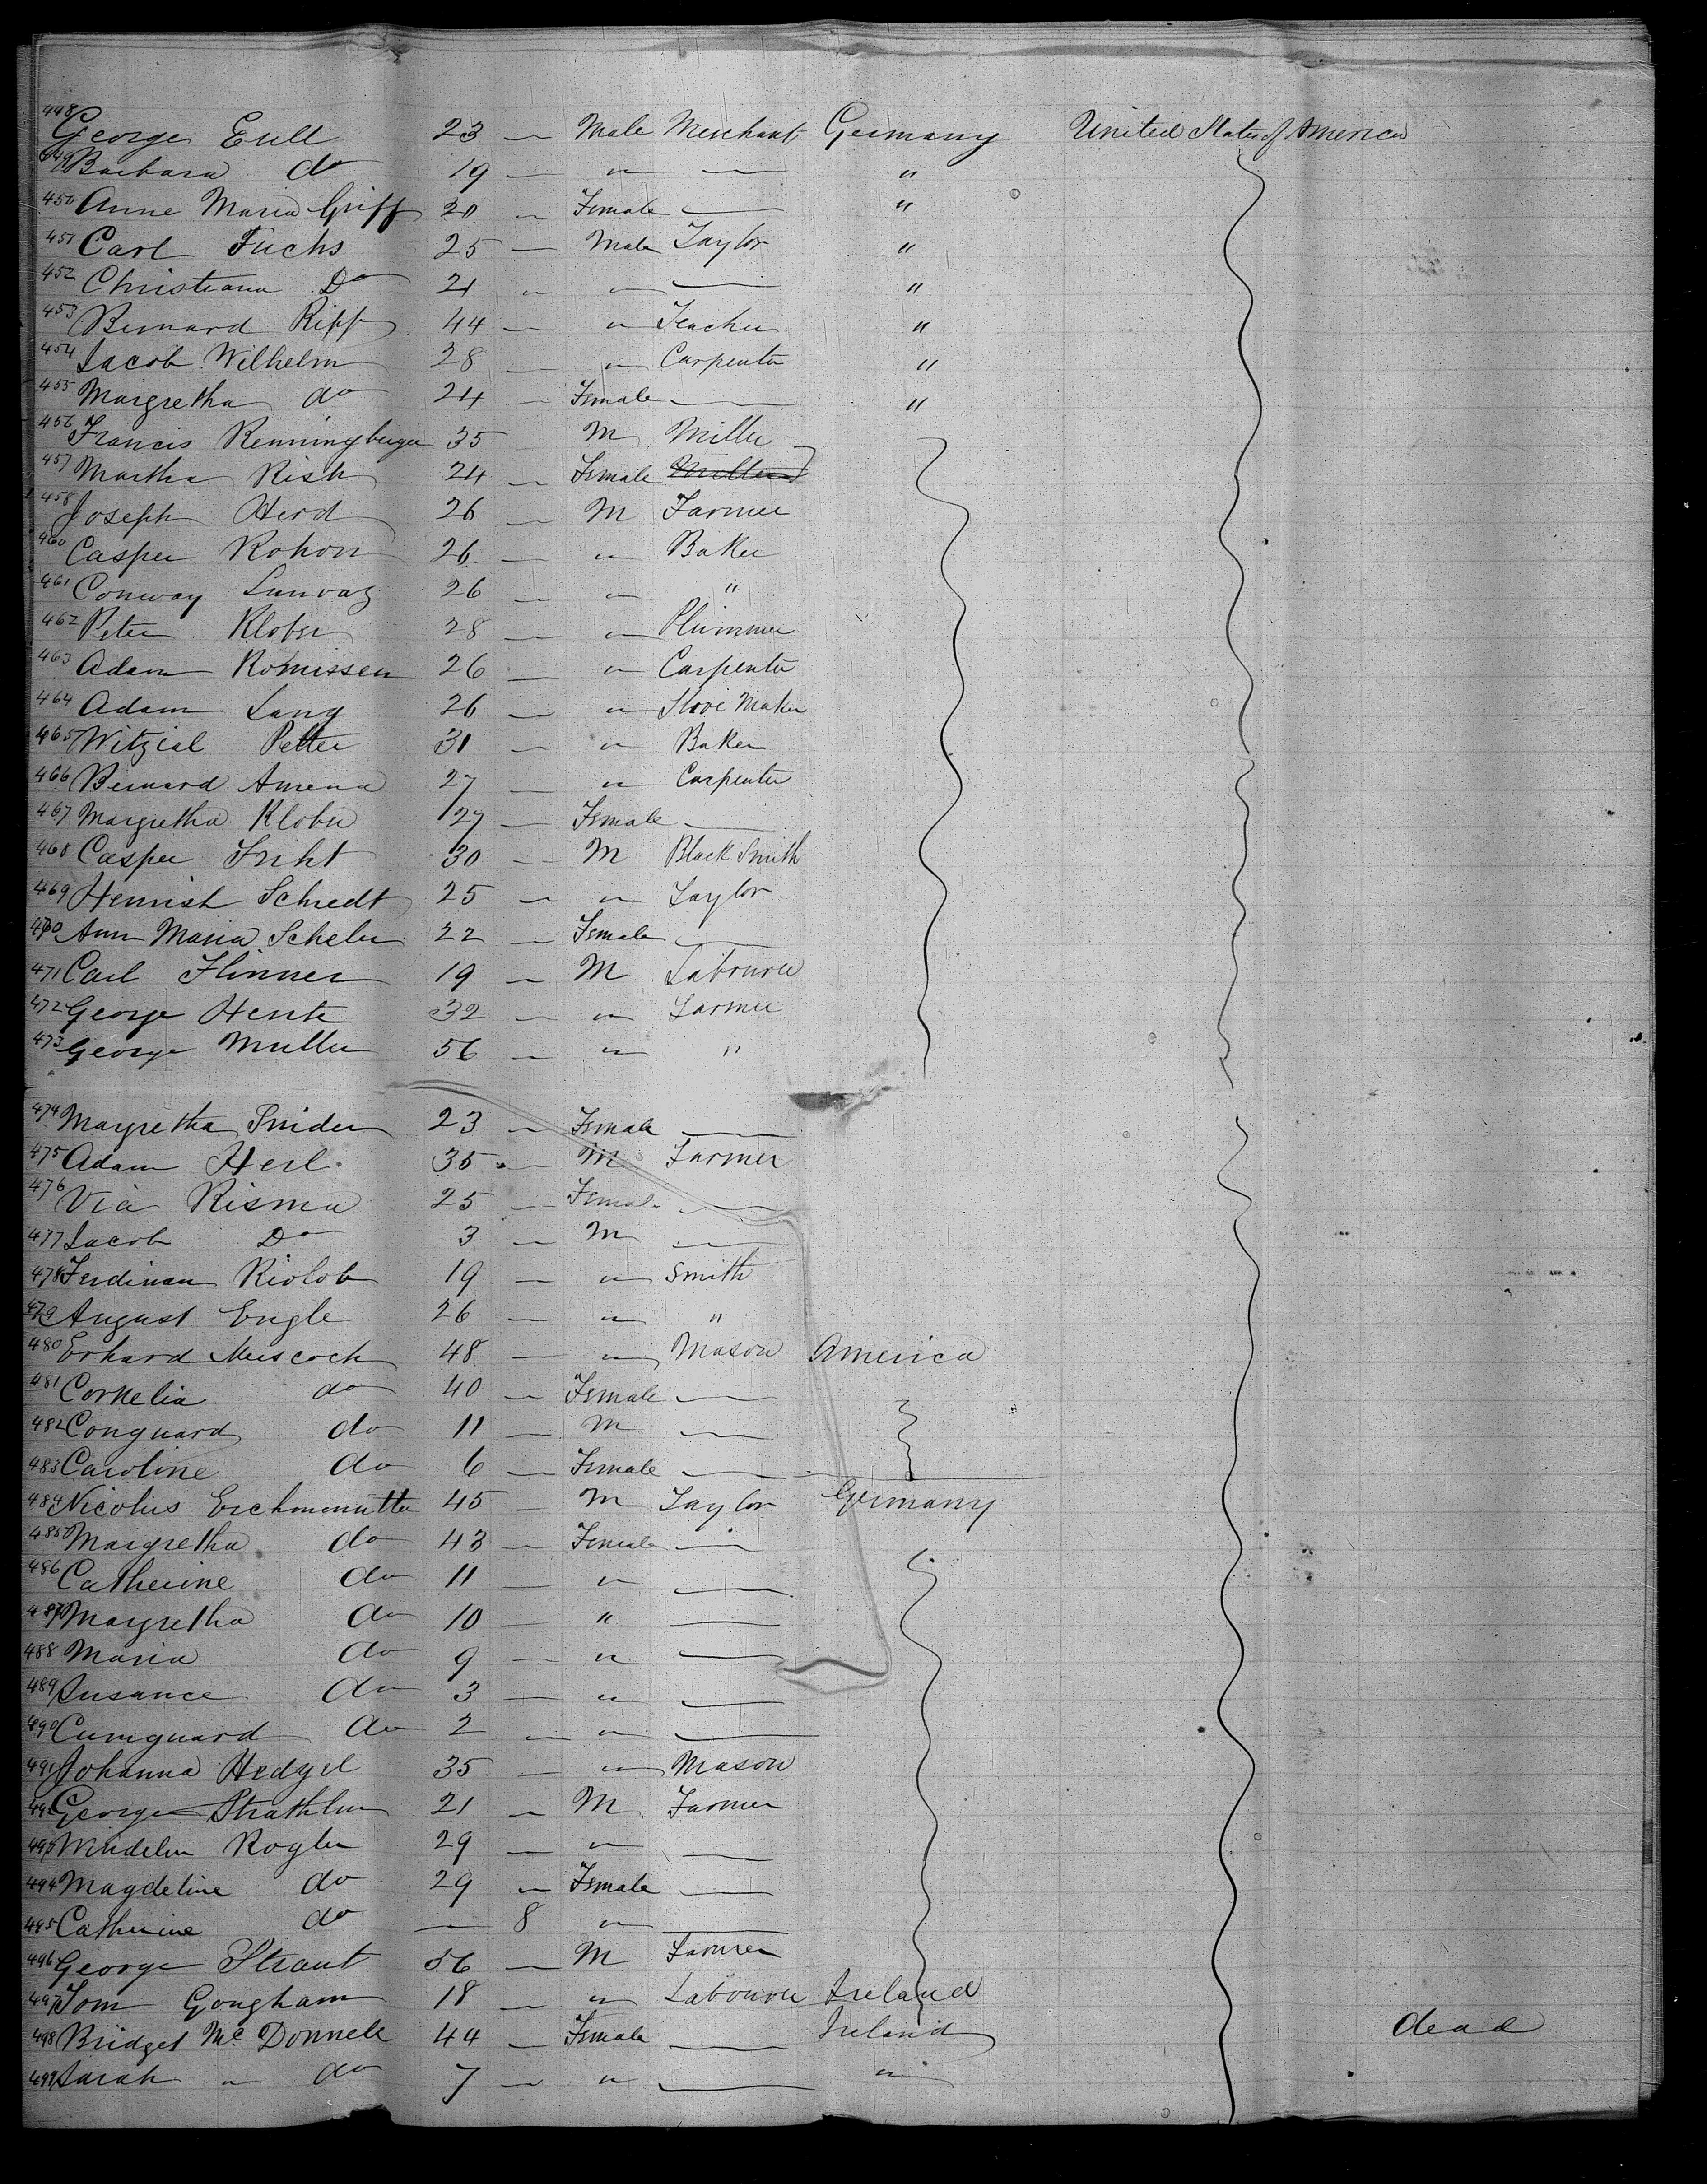 448 George Eull 23 — Male Merchant Germany United States of America
449 Barbara do 19 — " — "
450 Anne Maria Griff 20 — Female — "
451 Carl Fuchs 25 — Male Taylor "
452 Christiana Do 21 " " — "
453 Bernard Ripp 44 — " Teacher "
454 Jacob Wilhelm 28 — " Carpenter "
455 Margretha do 24 — Female — "
456 Francis Renningberger 35 M Miller
457 Martha Rish 24 — Female Miller
458 Joseph Herd 26 — M Farmer
460 Casper Rohon 26 — " Baker
461 Conway 26 — " "
462 Peter Klober 28 — " Plummer
463 Adam Romissen 26 — " Carpenter
464 Adam Lang 26 — " Stove Maker
465 Witzial Petter 31 — " Baker
466 Bernard Amena 27 — " Carpenter
467 Margretha Klober 27 — Female —
468 Casper Friht 30 — M Black Smith
469 Henrish Schredt 25 — " Taylor
470 Ann Maria Scheler 22 — Female —
471 Carl Flinner 19 — M Labourer
472 George Henk 32 — " Farmer
473 George Muller 56 — " "
474 Margretha Snider 23 — Female —
475 Adam Herl 35 — M Farmer
476 Via Risma 25 — Female —
477 Jacob Do 3 — M —
478 Ferdinan Riolob 19 — " Smith
479 August Engle 26 — " "
480 Erhard Muscoch 48 — " Mason America
481 Cornelia do 40 — Female —
482 Conguard do 11 — M —
483 Caroline do 6 — Female —
484 Nicolus 45 — M Taylor Germany
485 Margretha do 43 — Female —
486 Catherine do 11 — " —
487 Margretha do 10 — " —
488 Maria do 9 — " —
489 Susance do 3 — " —
490 Cumguard do 2 — " —
491 Johanna Hedgel 35 — " Mason
492 George Strathlun 21 — M Farmer
493 Windelin Rogler 29 — " —
494 Magdeline do 29 — Female —
495 Catherine do — 8 " —
496 George Straut 56 — M Farmer
497 Tom Gongham 18 — " Labourer Ireland
498 Bridget Mc Donnell 44 — Female — Ireland dead
499 Sarah " do 7 — " — "